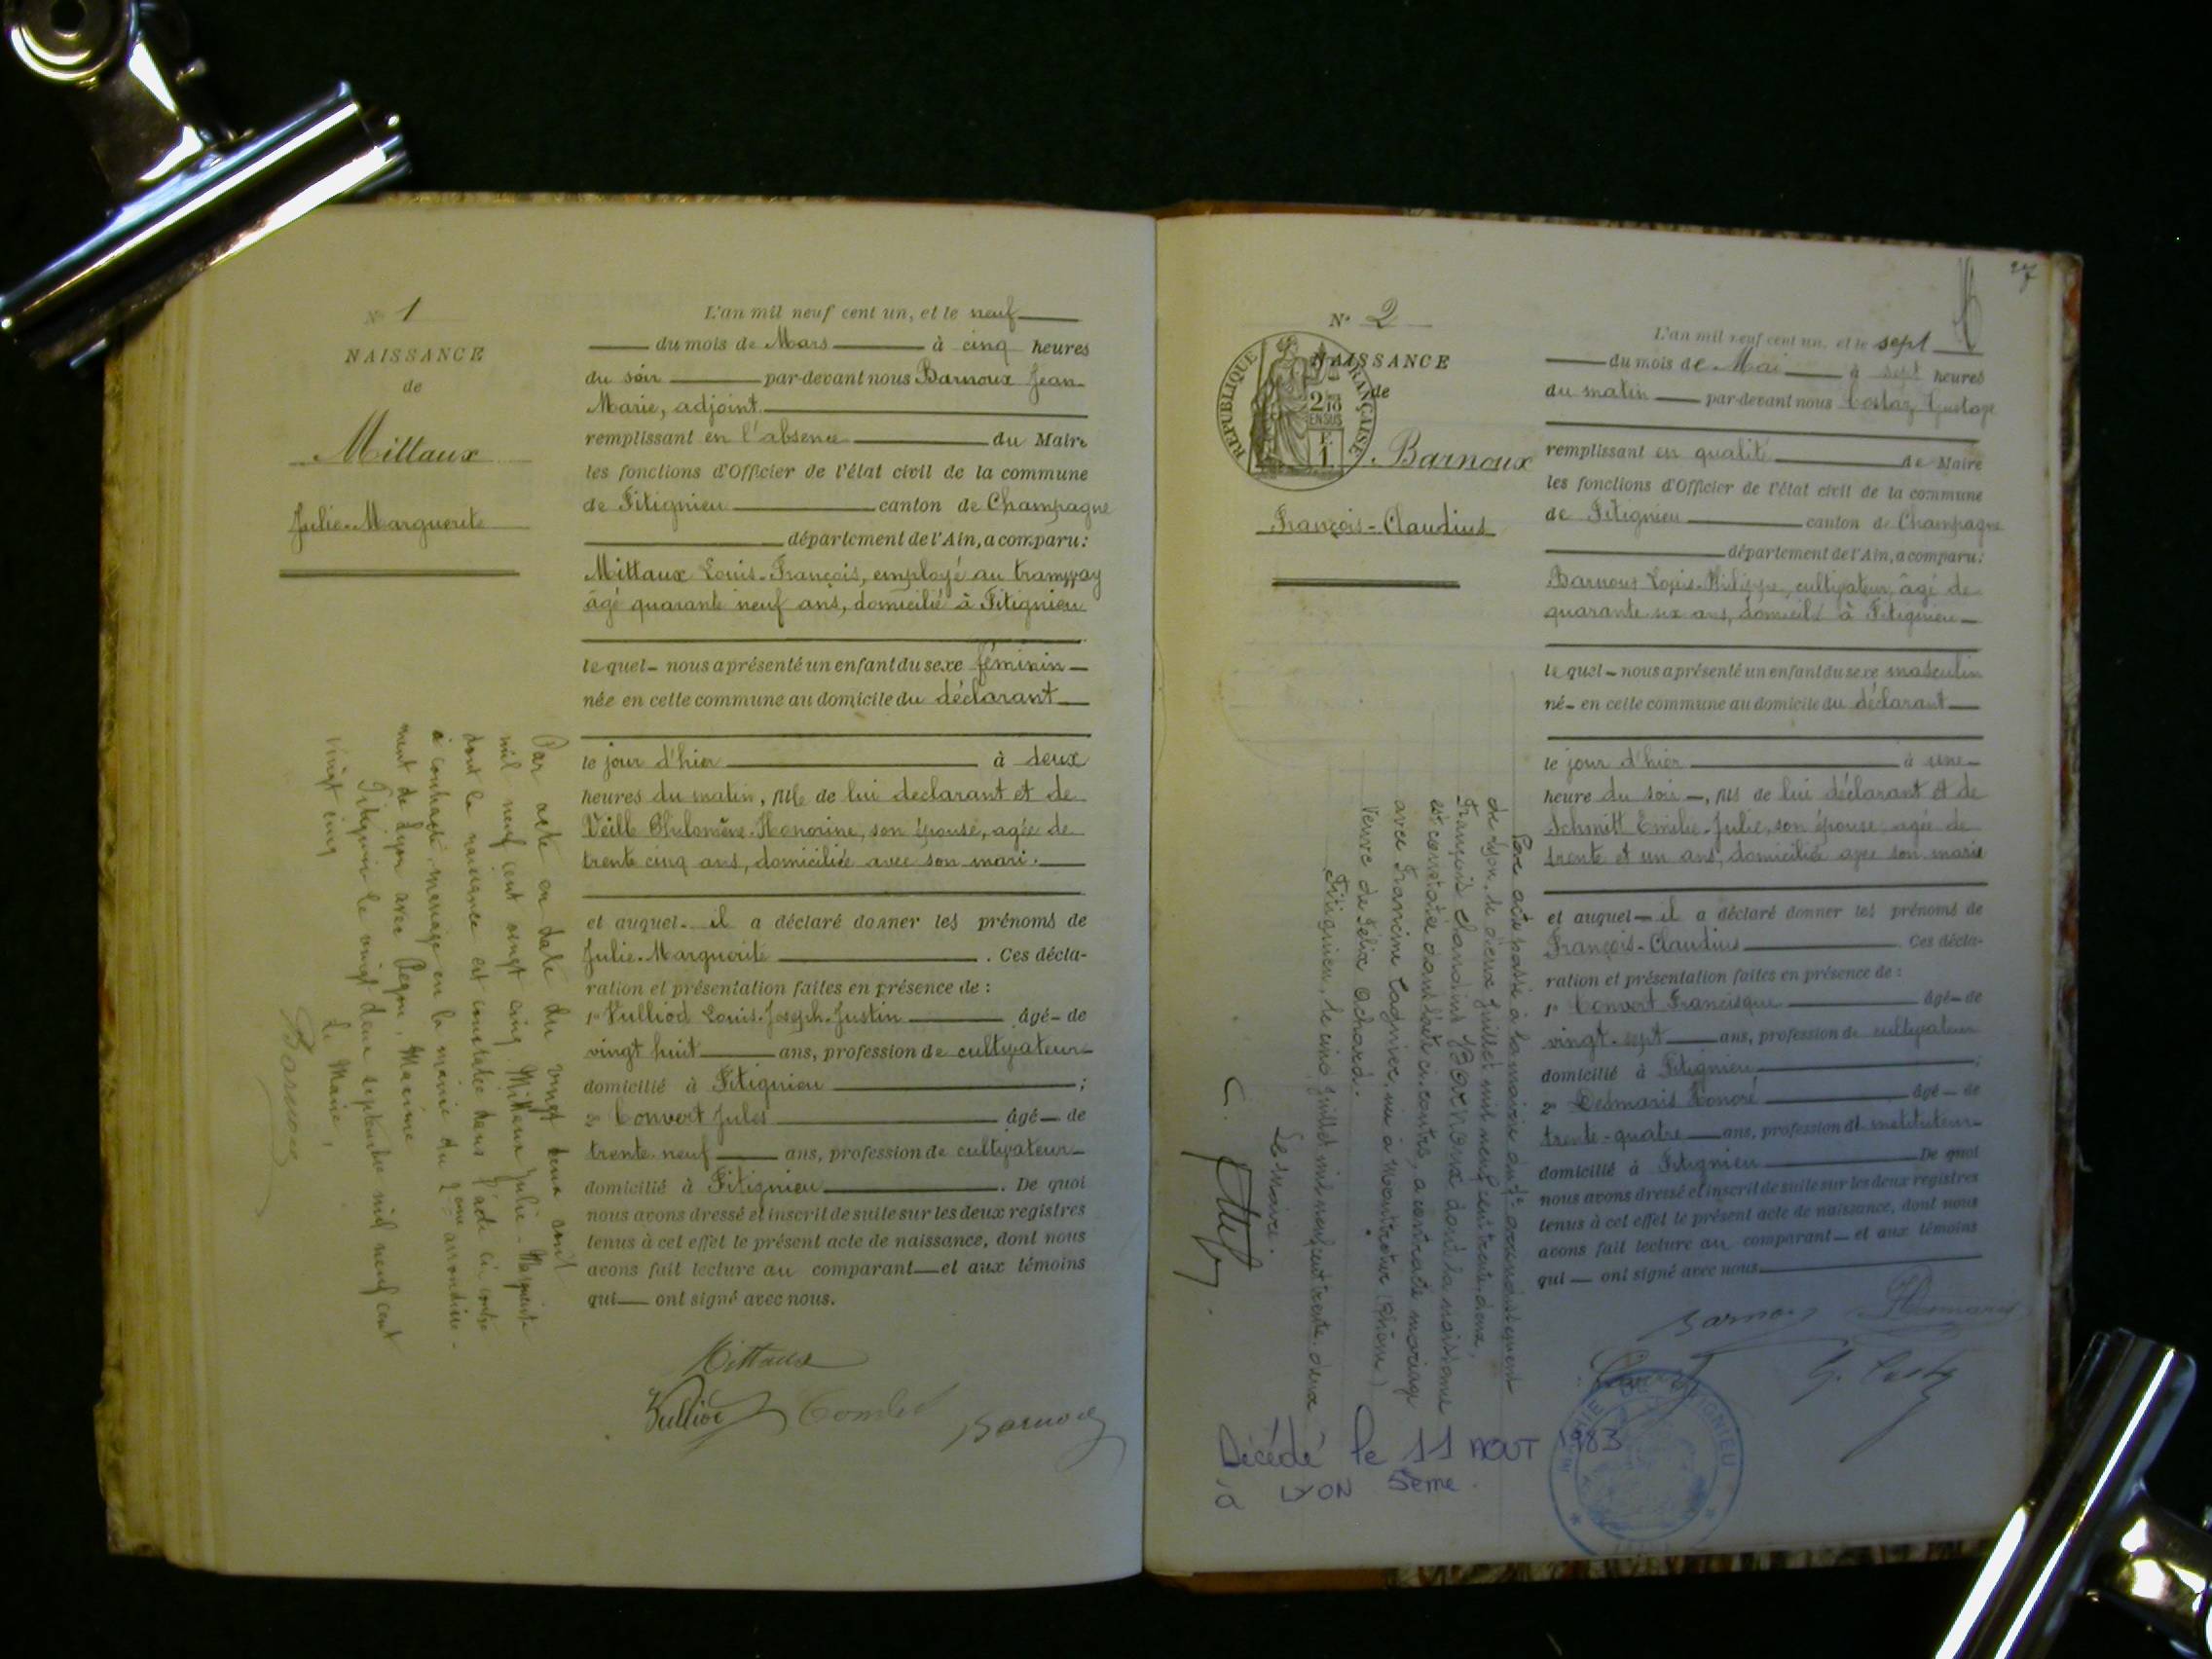 N° 1
NAISSANCE
de
Mittaux
Julie-Marguerite
L'an mil neuf cent un, et le neuf
du mois de Mars à cinq heures
du soir par-devant nous Barnoux Jean
Marie, adjoint
remplissant en l'absence du Maire
les fonctions d'Officier de l'état civil de la commune
de Fitignieu canton de Champagne
département de l'Ain, a comparu:
Mittaux Louis-François, employé au tramway
âgé quarante neuf ans, domicilié à Fitignieu
le quel nous a présenté un enfant du sexe féminin
née en cette commune au domicile du déclarant
le jour d'hier à deux
heures du matin, fille de lui declarant et de
Veille Philomène-Honorine, son épouse, agée de
trente cinq ans, domiciliée avec son mari.
et auquel il a déclaré donner les prénoms de
Julie-Marguerite. Ces décla-
ration et présentation faites en présence de:
1° Vulliod Louis-Joseph-Justin âgé de
vingt huit ans, profession de cultivateur
domicilié à Fitignieu;
2° Convert Jules âgé de
trente neuf ans, profession de cultivateur
domicilié à Fitignieu. De quoi
nous avons dressé et inscrit de suite sur les deux registres
tenus à cet effet le présent acte de naissance, dont nous
avons fait lecture au comparant et aux témoins
qui ont signé avec nous.
Mittaux
Vulliod Barnoux
Par acte en date du vingt deux août
mil neuf cent vingt cinq Mittaux Julie-Marguerite
dont la naissance est constatée dans l'acte ci-contre
a contracté mariage en la mairie du 2eme arrondisse-
ment de Lyon avec Maxime
Fitignieu le vingt deux septembre mil neuf cent
vingt cinq
Le Maire,
Barnoux
27
N° 2
NAISSANCE
de
REPUBLIQUE FRANÇAISE
Barnoux
François-Claudius
L'an mil neuf cent un, et le sept
du mois de Mai à sept heures
du matin par-devant nous Costaz Gustave
remplissant en qualité de Maire
les fonctions d'Officier de l'état civil de la commune
de Fitignieu canton de Champagne
département de l'Ain, a comparu:
Barnoux Louis-Philippe, cultivateur, âgé de
quarante six ans, domicilié à Fitignieu
le quel nous a présenté un enfant du sexe masculin
né en cette commune au domicile du déclarant
le jour d'hier à une
heure du soir, fils de lui déclarant et de
Schmitt Emilie-Julie, son épouse, agée de
trente et un ans, domiciliée avec son marie
et auquel il a déclaré donner les prénoms de
François-Claudius. Ces décla-
ration et présentation faites en présence de:
1° Convert Francisque âgé de
vingt-sept ans, profession de cultivateur
domicilié à Fitignieu;
2° Desmaris Honoré âgé de
trente-quatre ans, profession d'instituteur
domicilié à Fitignieu De quoi
nous avons dressé et inscrit de suite sur les deux registres
tenus à cet effet le présent acte de naissance, dont nous
avons fait lecture au comparant et aux témoins
qui ont signé avec nous
Barnoux Desmaris
Convert G. Costaz
Par acte passé à la mairie du arrondissement
de Lyon, le deux juillet mil neuf cent trente deux,
François Claudius Barnoux dont la naissance
est constatée dans l'acte ci-contre, a contracté mariage
avec Francine née à (Rhône)
Veuve de Félix Achard.
Fitignieu, le cinq juillet mil neuf cent trente-deux
Le Maire.
Décédé le 11 AOUT 1983
à LYON 5eme.